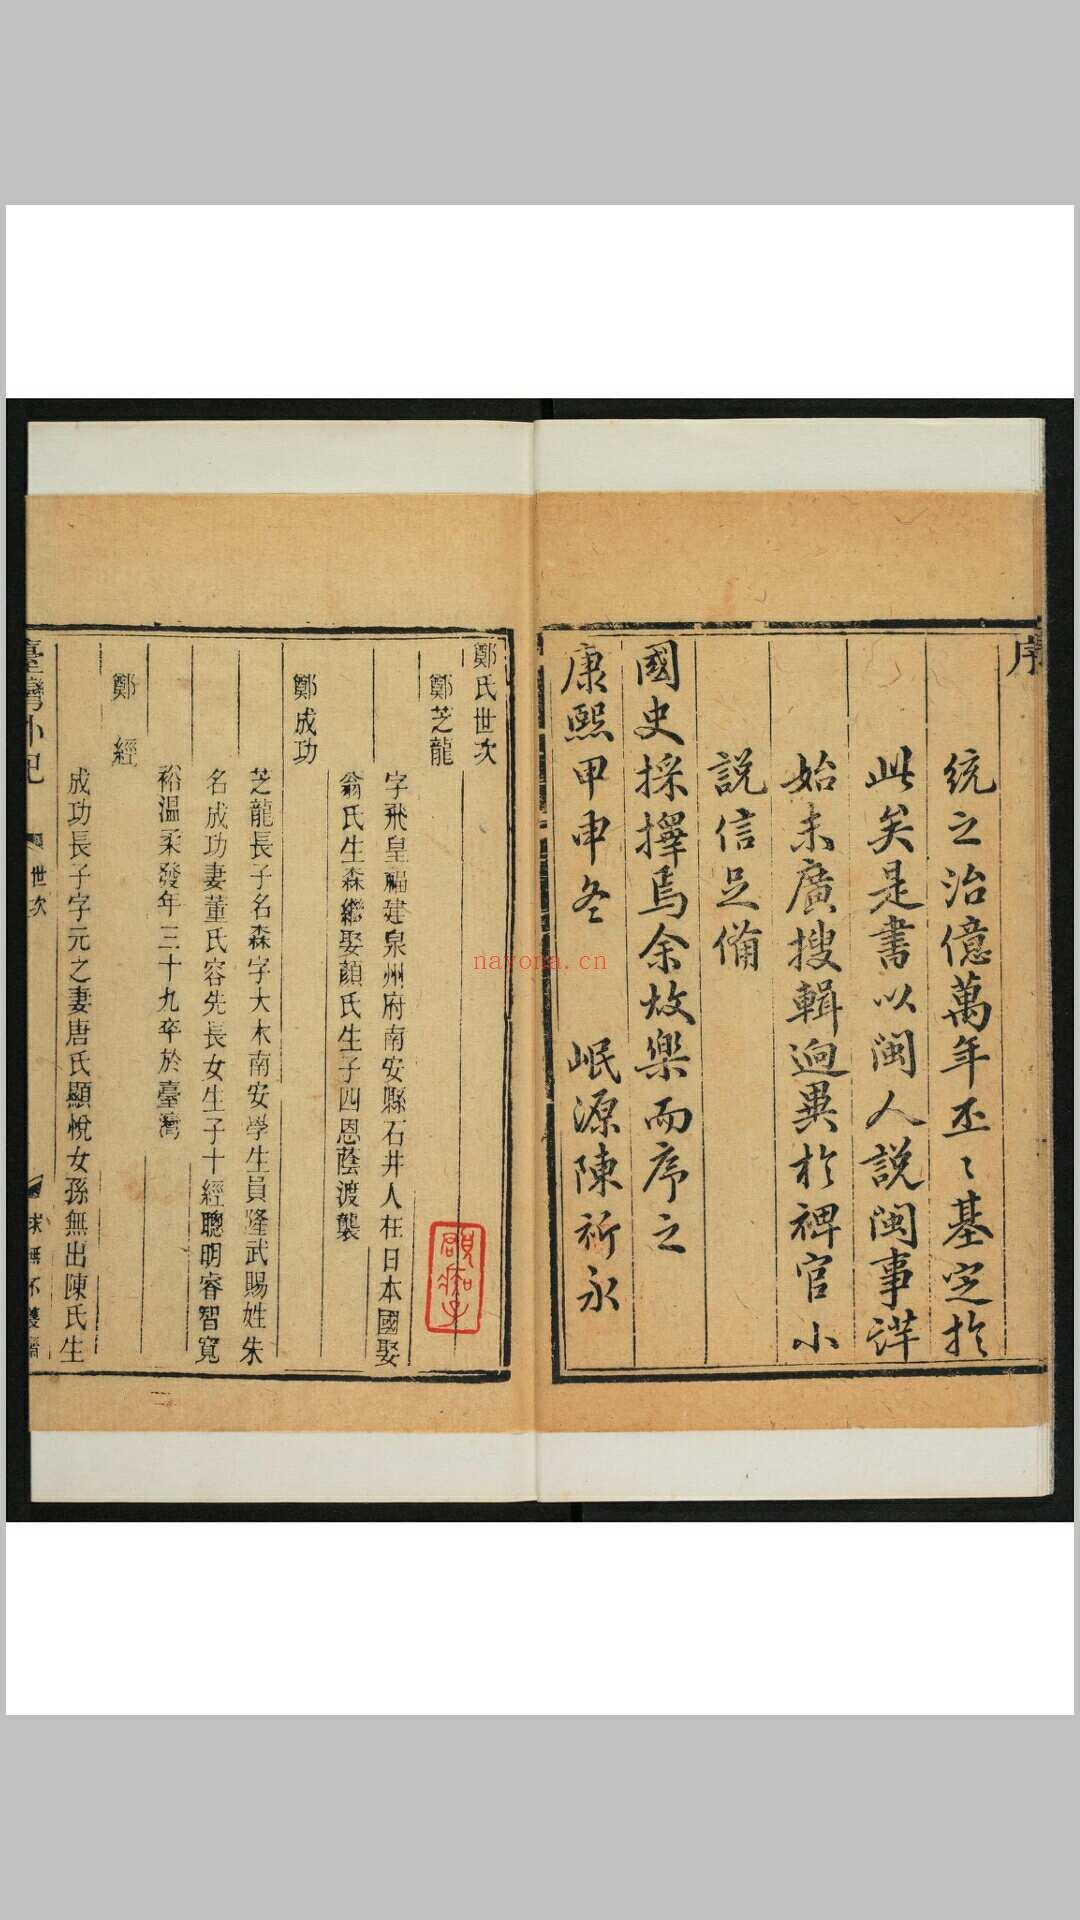 序
統之治億萬年丕丕基定於
此矣是書以閩人說閩事詳
始末廣搜輯迥異於稗官小
說信足備
國史採擇焉余故樂而序之
康熙甲申冬 岷源陳祈永
鄭氏世次
鄭芝龍
字飛皇福建泉州府南安縣石井人在日本國娶
翁氏生森繼娶顏氏生子四恩蔭渡襲
鄭成功
芝龍長子名森字大木南安學生員隆武賜姓朱
名成功妻董氏容先長女生子十經聰明睿智寬
裕溫柔發年三十九卒於臺灣
鄭經
成功長子字元之妻唐氏顯悅女孫無出陳氏生
臺灣外記 世次 一 求無不獲齋
nayona.cn